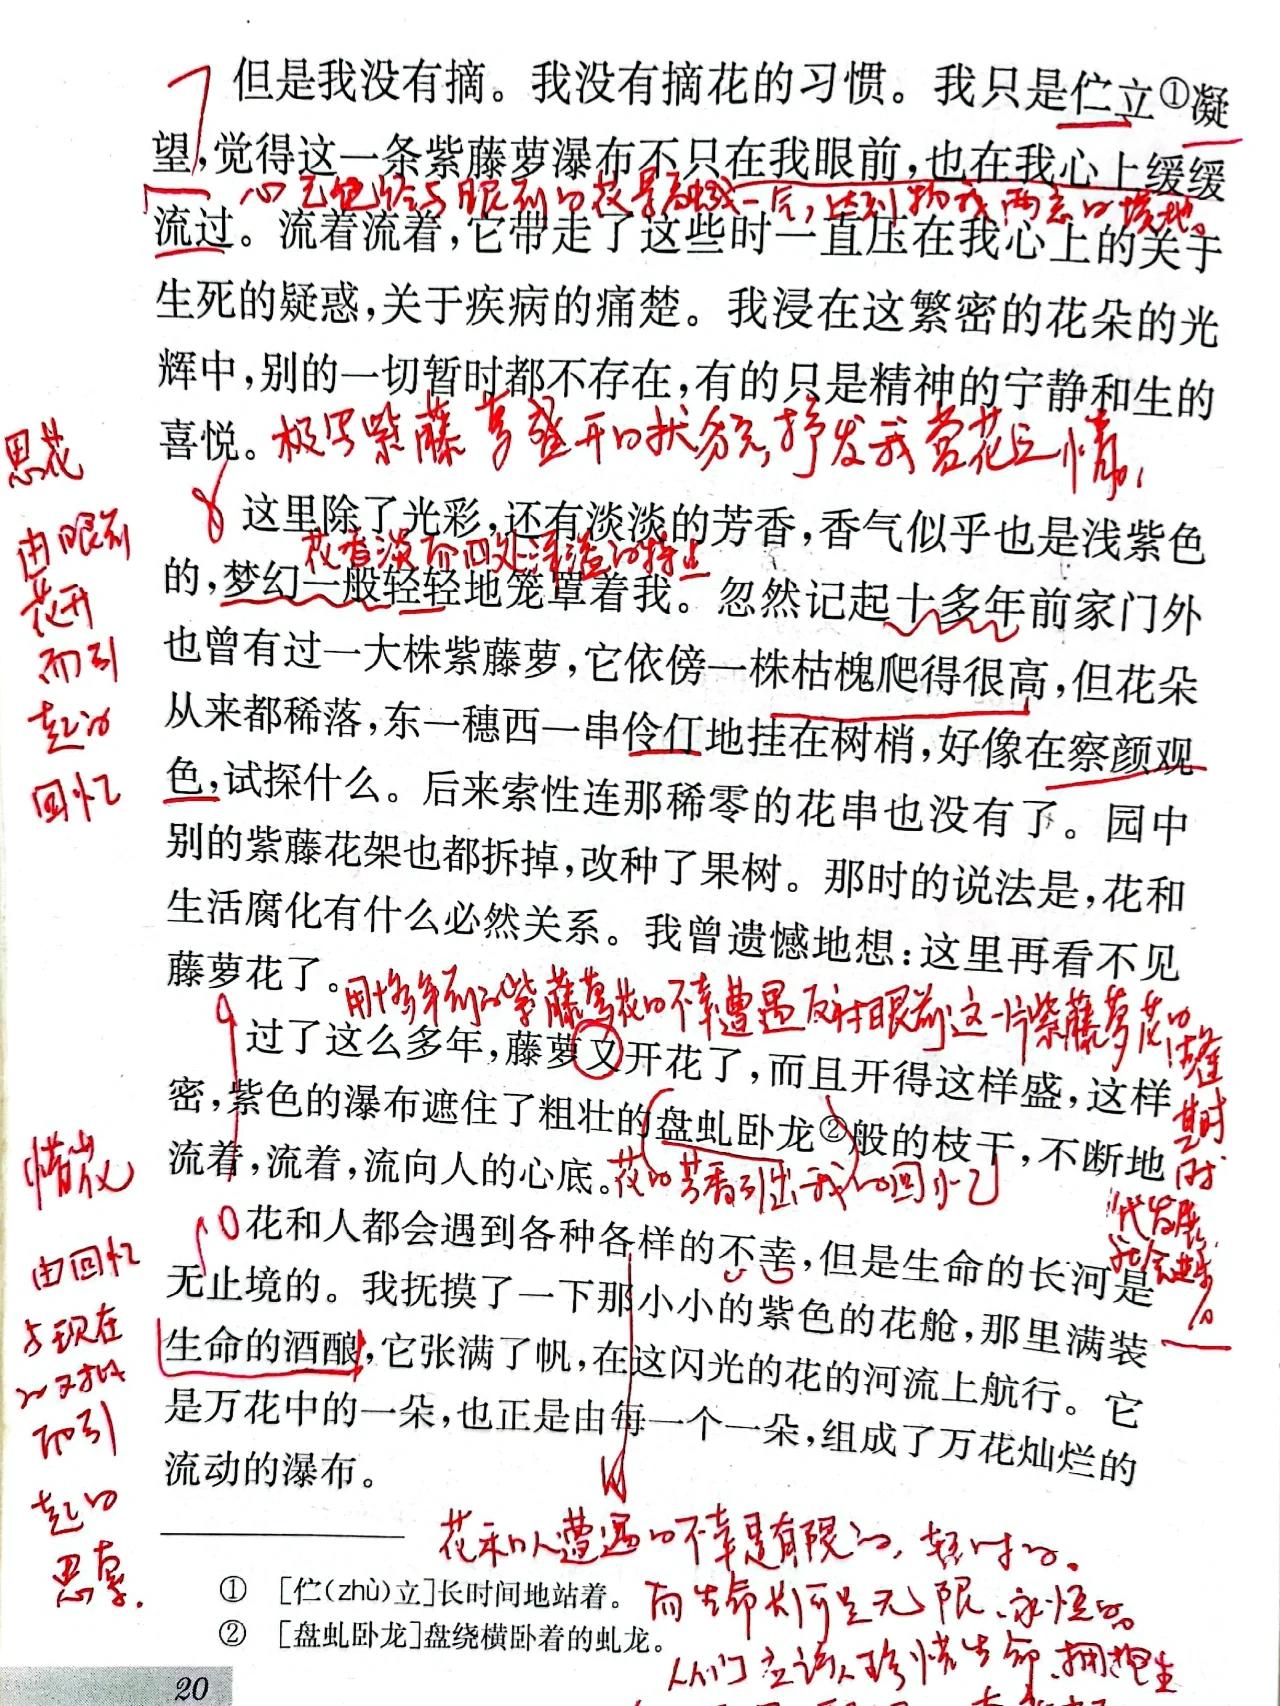 7 但是我没有摘。我没有摘花的习惯。我只是伫立①凝
望，觉得这一条紫藤萝瀑布不只在我眼前，也在我心上缓缓
流过。流着流着，它带走了这些时一直压在我心上的关于
生死的疑惑，关于疾病的痛楚。我浸在这繁密的花朵的光
辉中，别的一切暂时都不存在，有的只是精神的宁静和生的
喜悦。极写紫藤萝盛开的状貌，抒发我赏花之情。
思花
由眼前
花开
而引
起的
回忆
8 这里除了光彩，还有淡淡的芳香，香气似乎也是浅紫色
花香淡而四处洋溢的特点
的，梦幻一般轻轻地笼罩着我。忽然记起十多年前家门外
也曾有过一大株紫藤萝，它依傍一株枯槐爬得很高，但花朵
从来都稀落，东一穗西一串伶仃地挂在树梢，好像在察颜观
色，试探什么。后来索性连那稀零的花串也没有了。园中
别的紫藤花架也都拆掉，改种了果树。那时的说法是，花和
生活腐化有什么必然关系。我曾遗憾地想：这里再看不见
藤萝花了。
用十多年前的紫藤萝花的不幸遭遇反衬眼前这一片紫藤萝花的
9 过了这么多年，藤萝又开花了，而且开得这样盛，这样
密，紫色的瀑布遮住了粗壮的盘虬卧龙②般的枝干，不断地
流着，流着，流向人的心底。花的芳香引出我的回忆
10 花和人都会遇到各种各样的不幸，但是生命的长河是
无止境的。我抚摸了一下那小小的紫色的花舱，那里满装
生命的酒酿，它张满了帆，在这闪光的花的河流上航行。它
是万花中的一朵，也正是由每一个一朵，组成了万花灿烂的
流动的瀑布。
由回忆
与现在
而引
起的
花和人遭遇的不幸是有限的，暂时的。
① ［伫(zhù)立］长时间地站着。
而生命长河是无限、永恒的。
② ［盘虬卧龙］盘绕横卧着的虬龙。
人们应该珍惜生命，拥抱生
20